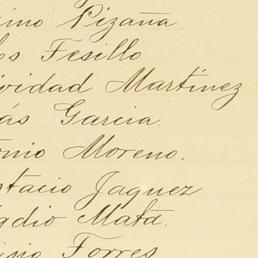 ino Pizaña
os Fesillo
ividad Martínez
ás Garcia.
onio Moreno.
stacio Jaquez
gdio Mata.
ino Torres